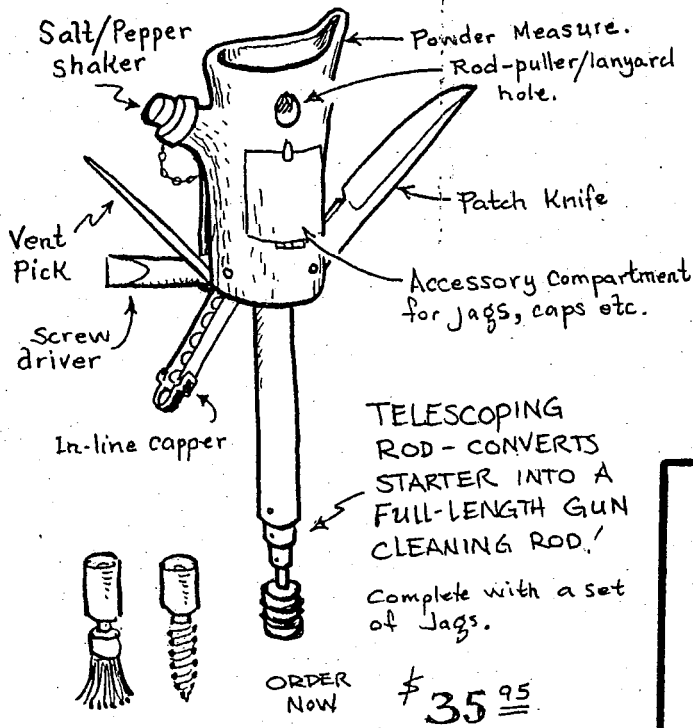 Salt/Pepper
Shaker
Powder Measure.
Rod-puller/lanyard
hole.
Patch Knife
Vent
Pick
Accessory Compartment
for jags, caps etc.
Screw
driver
In-line capper
TELESCOPING
ROD - CONVERTS
STARTER INTO A
FULL-LENGTH GUN
CLEANING ROD!
Complete with a set
of Jags.
ORDER
NOW
$35.95